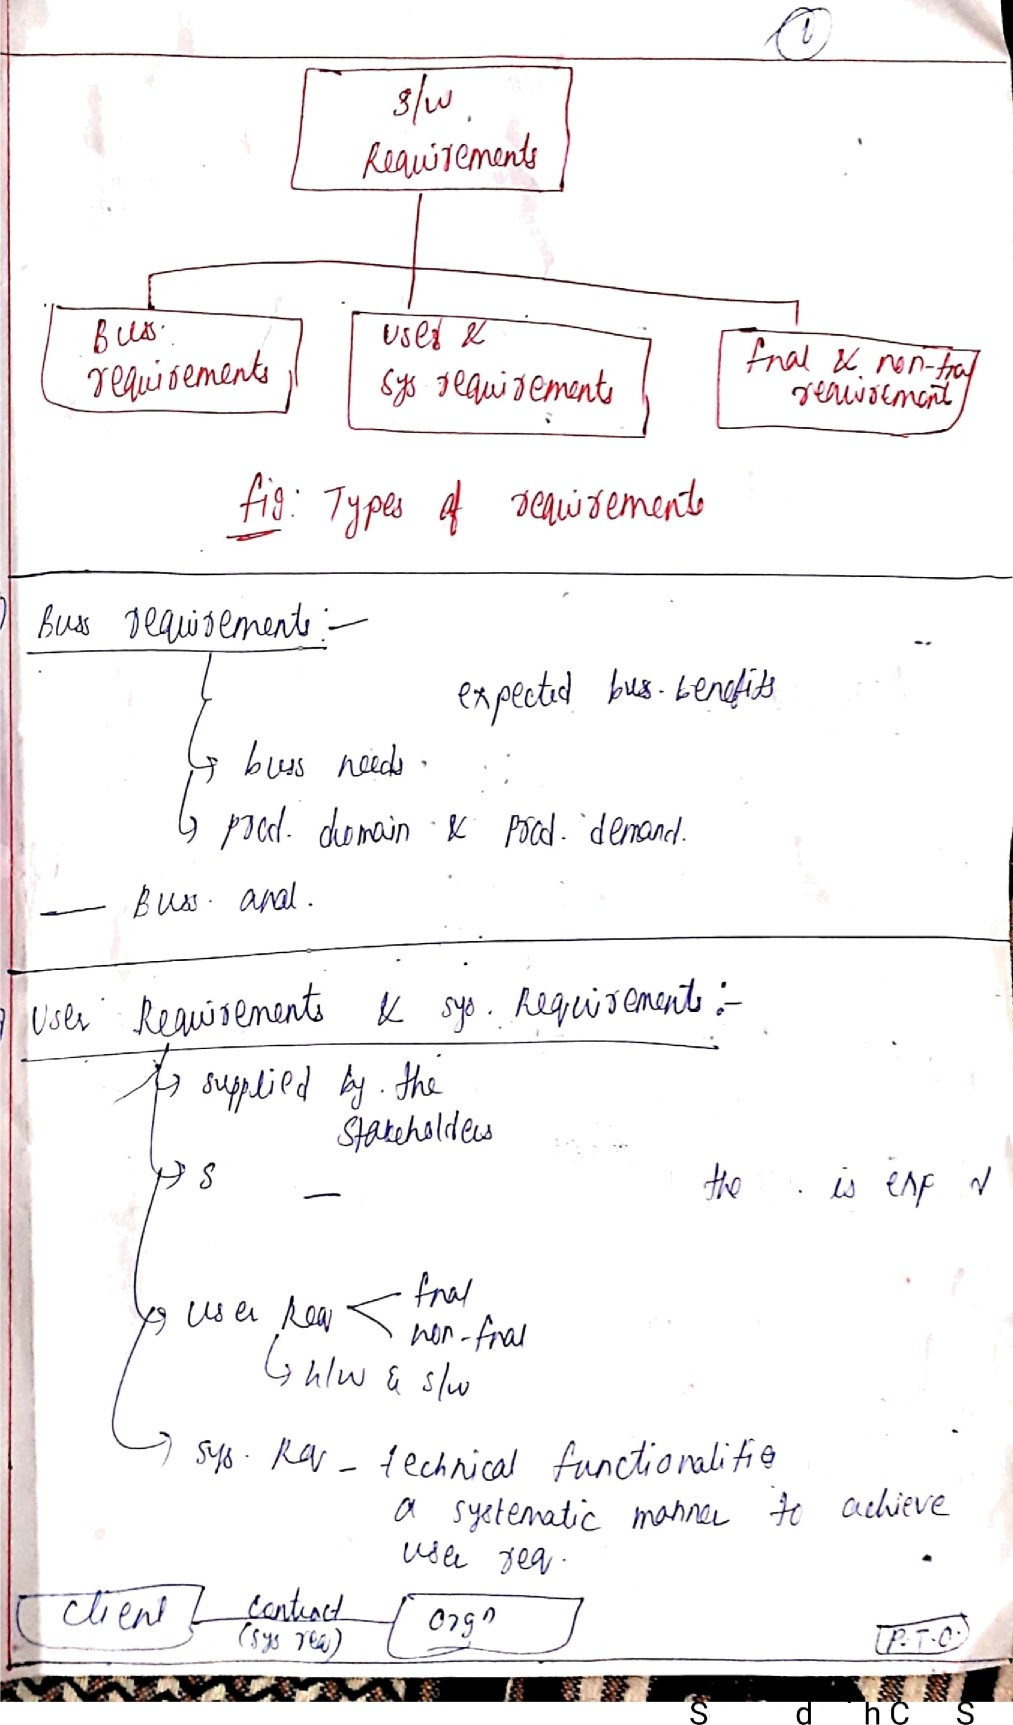 1
S/w
Requirements
Buss.
requirements
User &
sys requirements
fnal & non-fnal
requirement
fig: Types of requirements
Buss requirements:-
expected bus. benefits
buss needs.
prod. domain & prod. demand.
— Buss. anal.
User Requirements & sys. Requirements:-
supplied by. the
stakeholders
S
the . is
User Req
fnal
non-fnal
h/w & s/w
Sys. Req - technical functionalitie
a systematic manner to achieve
user req.
Client
contract
(sys req)
orgn
P.T.O.
S d h C S